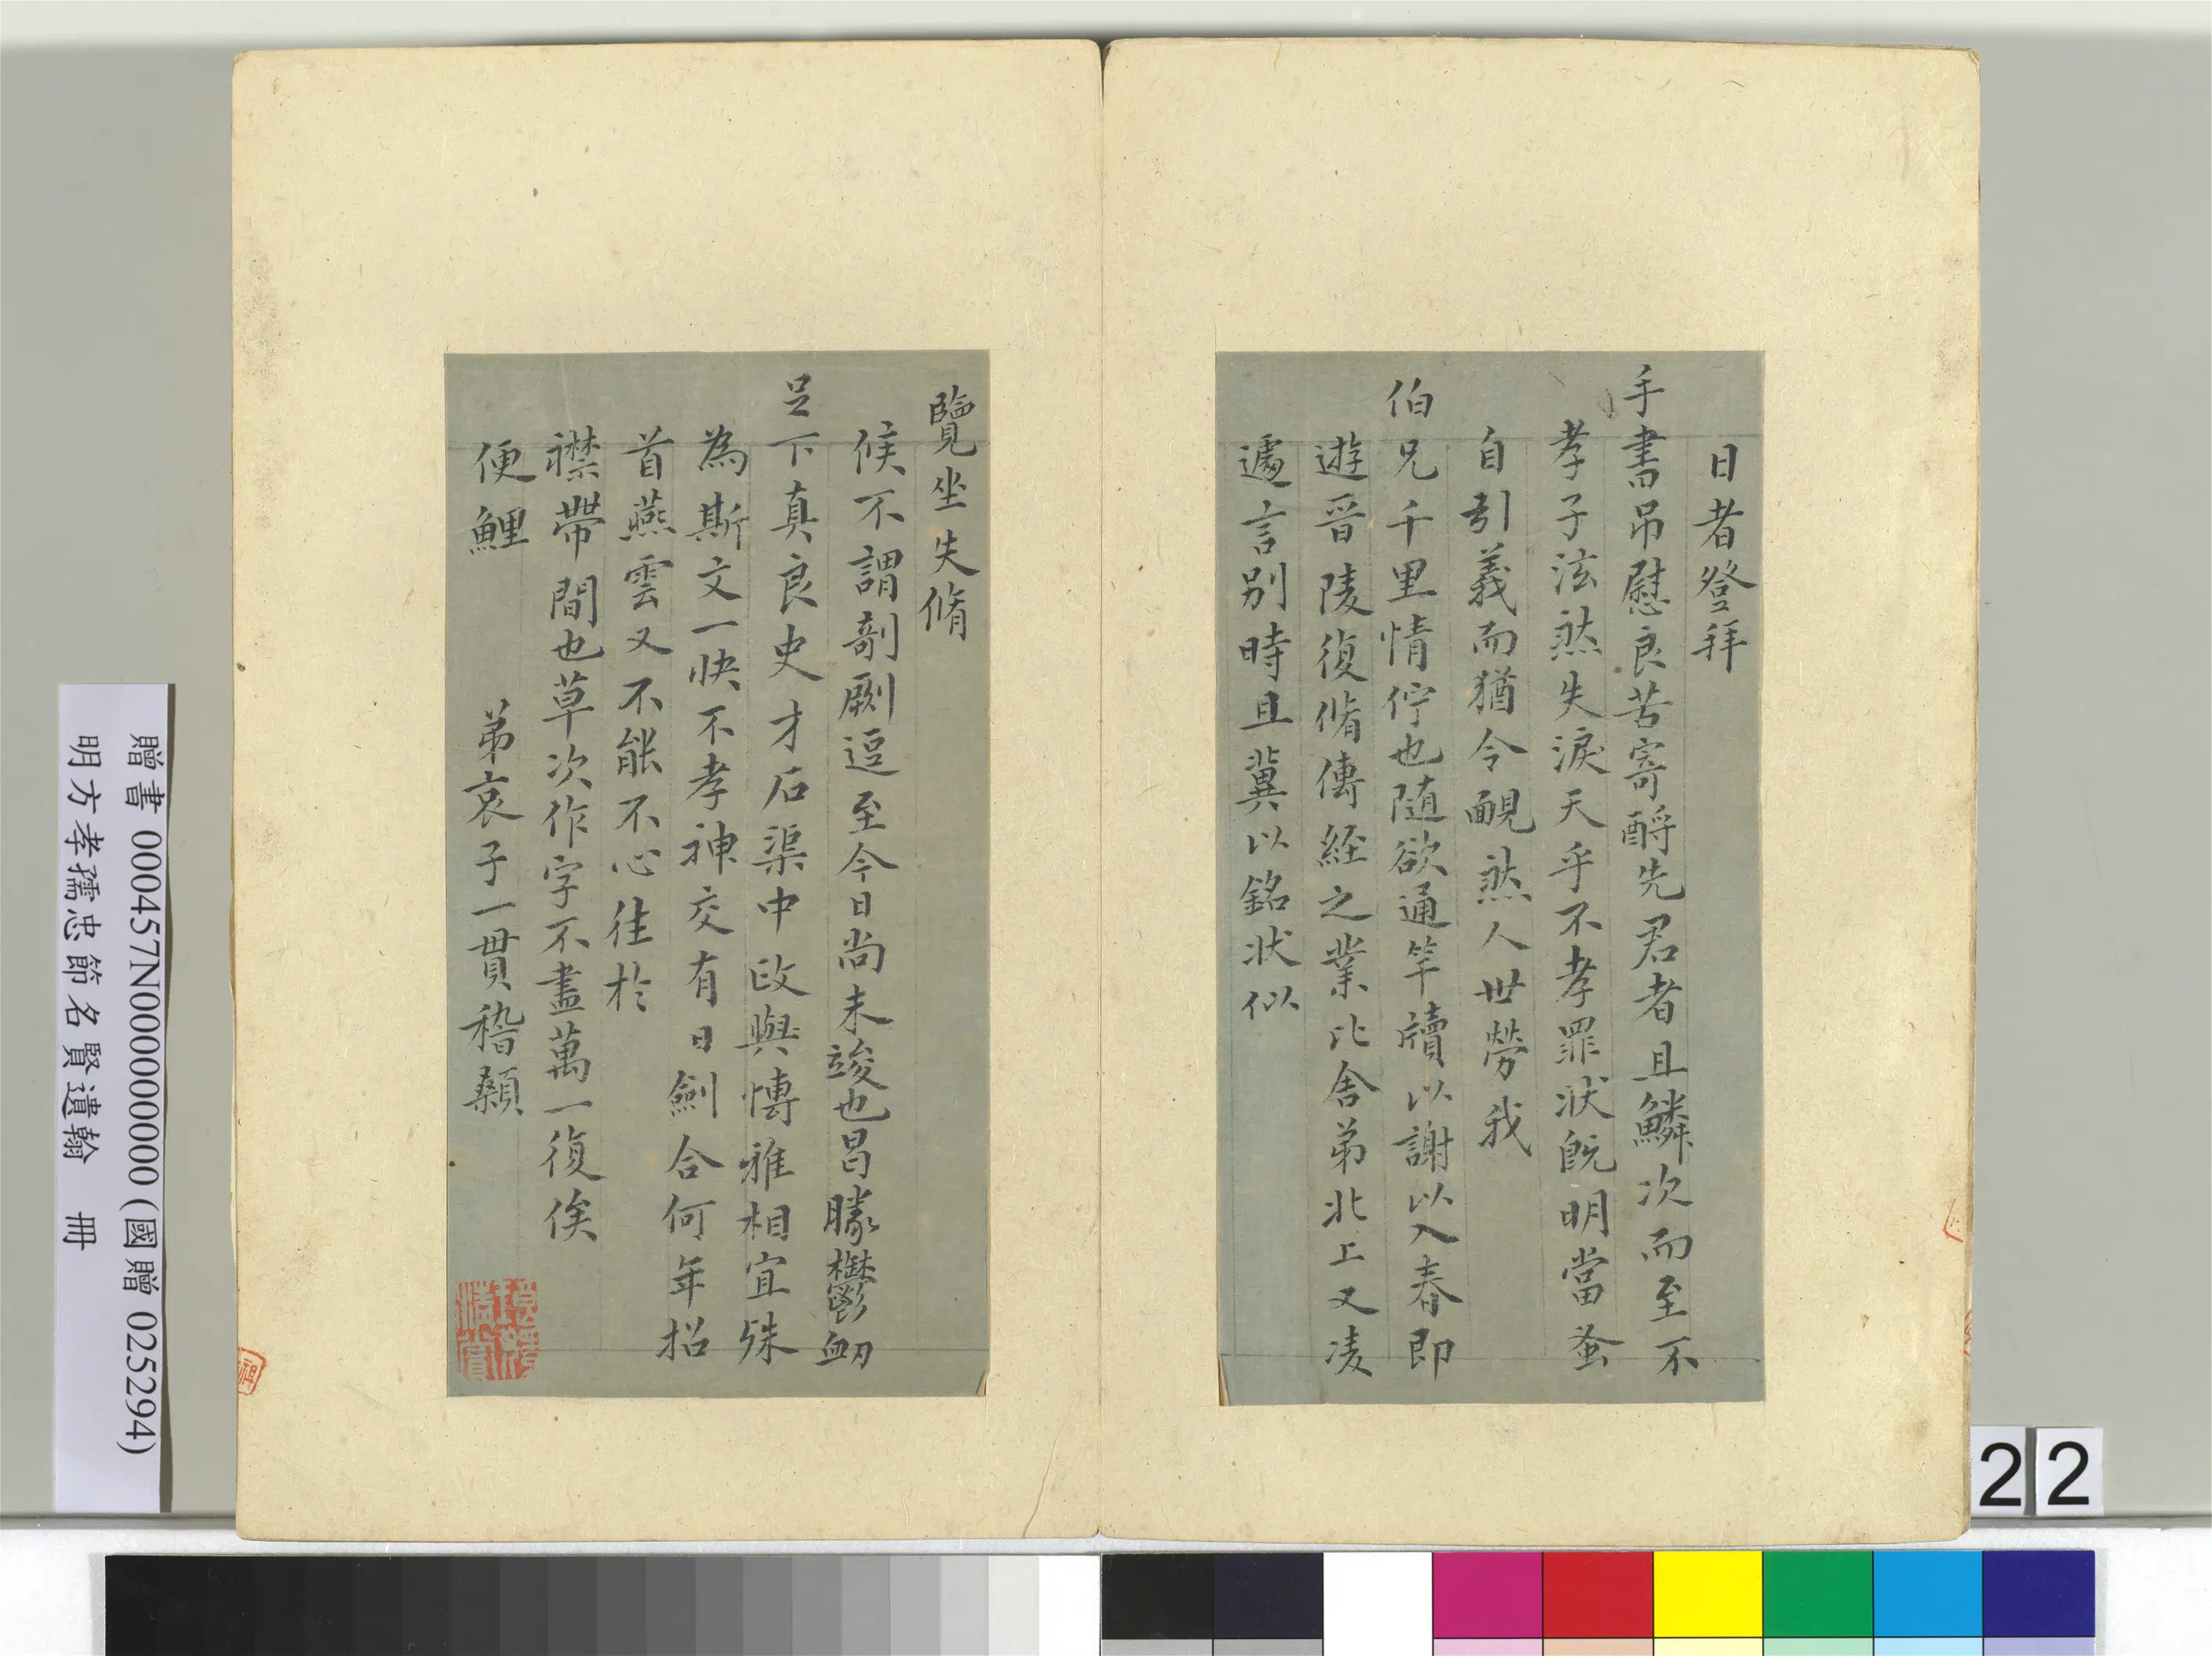 日者登拜
手書吊慰良苦寄酹先君者且鱗次而至不
孝子泫然失淚天乎不孝罪狀既明當蚤
自引義而猶令靦然人世勞我
伯兄千里情佇也随欲通竿牘以謝以入春即
遊晉陵復脩傳經之業比舍弟北上又凌
遽言别時且冀以銘狀似
覽坐失脩
候不謂剞劂逗至今日尚未竣也曷勝鬱衂
足下真良史才石渠中政與慱雅相宜殊
為斯文一快不孝神交有日劍合何年招
首燕雲又不能不心徃於
襟帶間也草次作字不盡萬一復俟
便鯉
弟哀子一貫稽顙
贈書 000457N000000000 (國贈 025294)
明方孝孺忠節名賢遺翰 冊
22